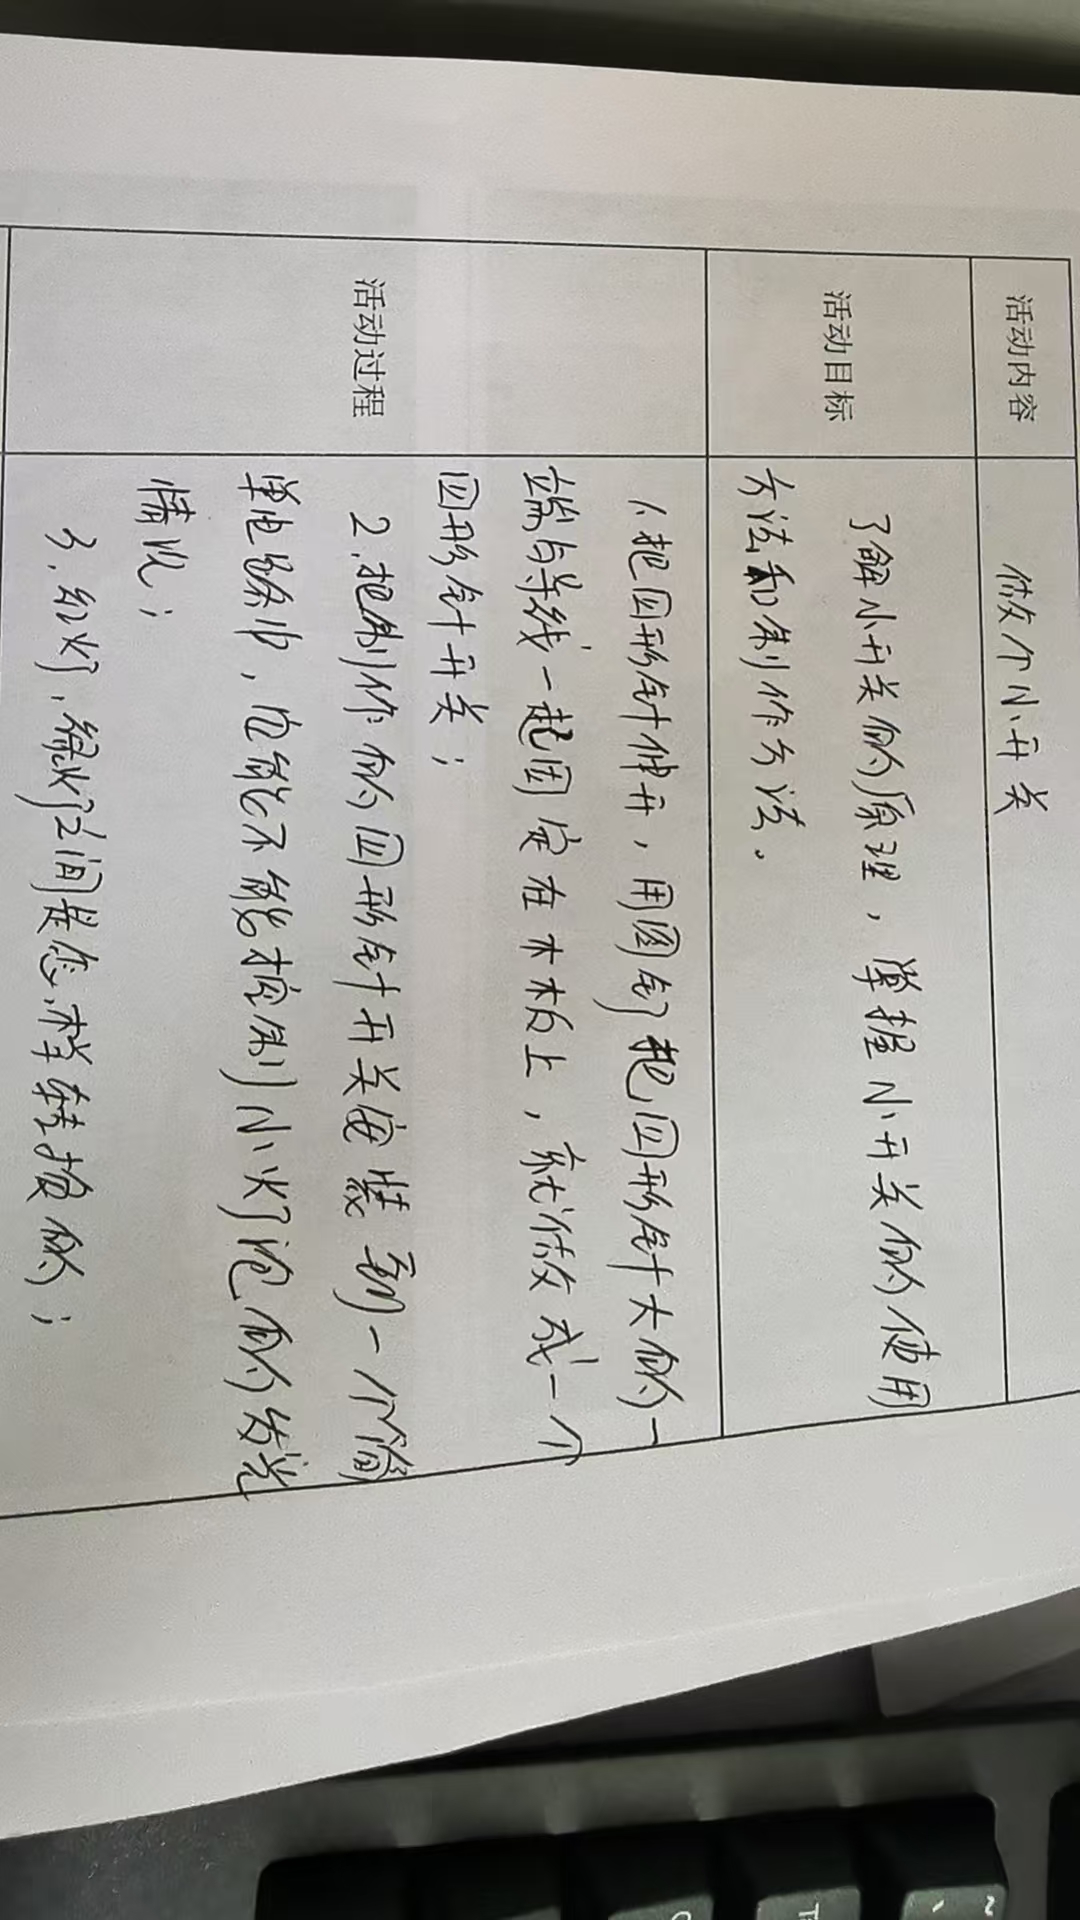 活动内容
做个小开关
活动目标
了解小开关的原理，掌握小开关的使用
方法和制作方法。
活动过程
1、把回形针伸开，用图钉把回形针大的一
端与导线一起固定在木板上，就做成一个
回形针开关；
2、把制作的回形针开关安装到一个简
单电路中，它能不能控制小灯泡的发光
情况；
3、红灯、绿灯之间是怎样转换的；